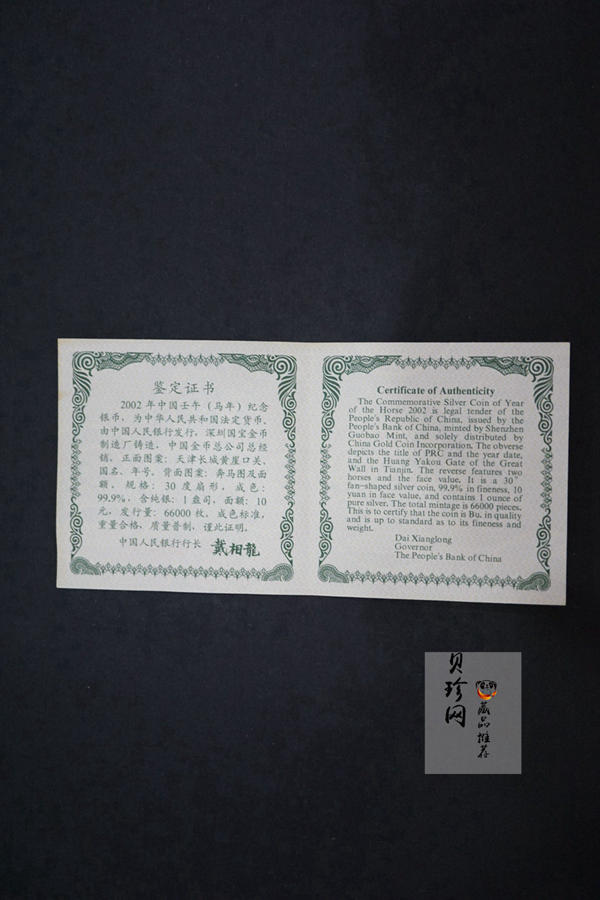 鉴定证书
2002 年中国壬午（马年）纪念
银币，为中华人民共和国法定货币，
由中国人民银行发行，深圳国宝金币
制造厂铸造，中国金币总公司总经
销。正面图案：天津长城黄崖口关、
国名、年号。背面图案：奔马图及面
额。规格：30 度扇形，成色：
99.9%，含纯银：1 盎司，面额：10
元，发行量：66000 枚，成色标准，
重量合格，质量普制，谨此证明。
中国人民银行行长 戴相龍
Certificate of Authenticity
The Commemorative Silver Coin of Year
of the Horse 2002 is legal tender of the
People's Republic of China, issued by the
People's Bank of China, minted by Shenzhen
Guobao Mint, and solely distributed by
China Gold Coin Incorporation. The obverse
depicts the title of PRC and the year date,
and the Huang Yakou Gate of the Great
Wall in Tianjin. The reverse features two
horses and the face value. It is a 30°
fan-shaped silver coin, 99.9% in fineness, 10
yuan in face value, and contains 1 ounce of
pure silver. The total mintage is 66000 pieces.
This is to certify that the coin is Bu. in quality
and is up to standard as to its fineness and
weight.
Dai Xianglong
Governor
The People's Bank of China
贝珍网
藏品推荐